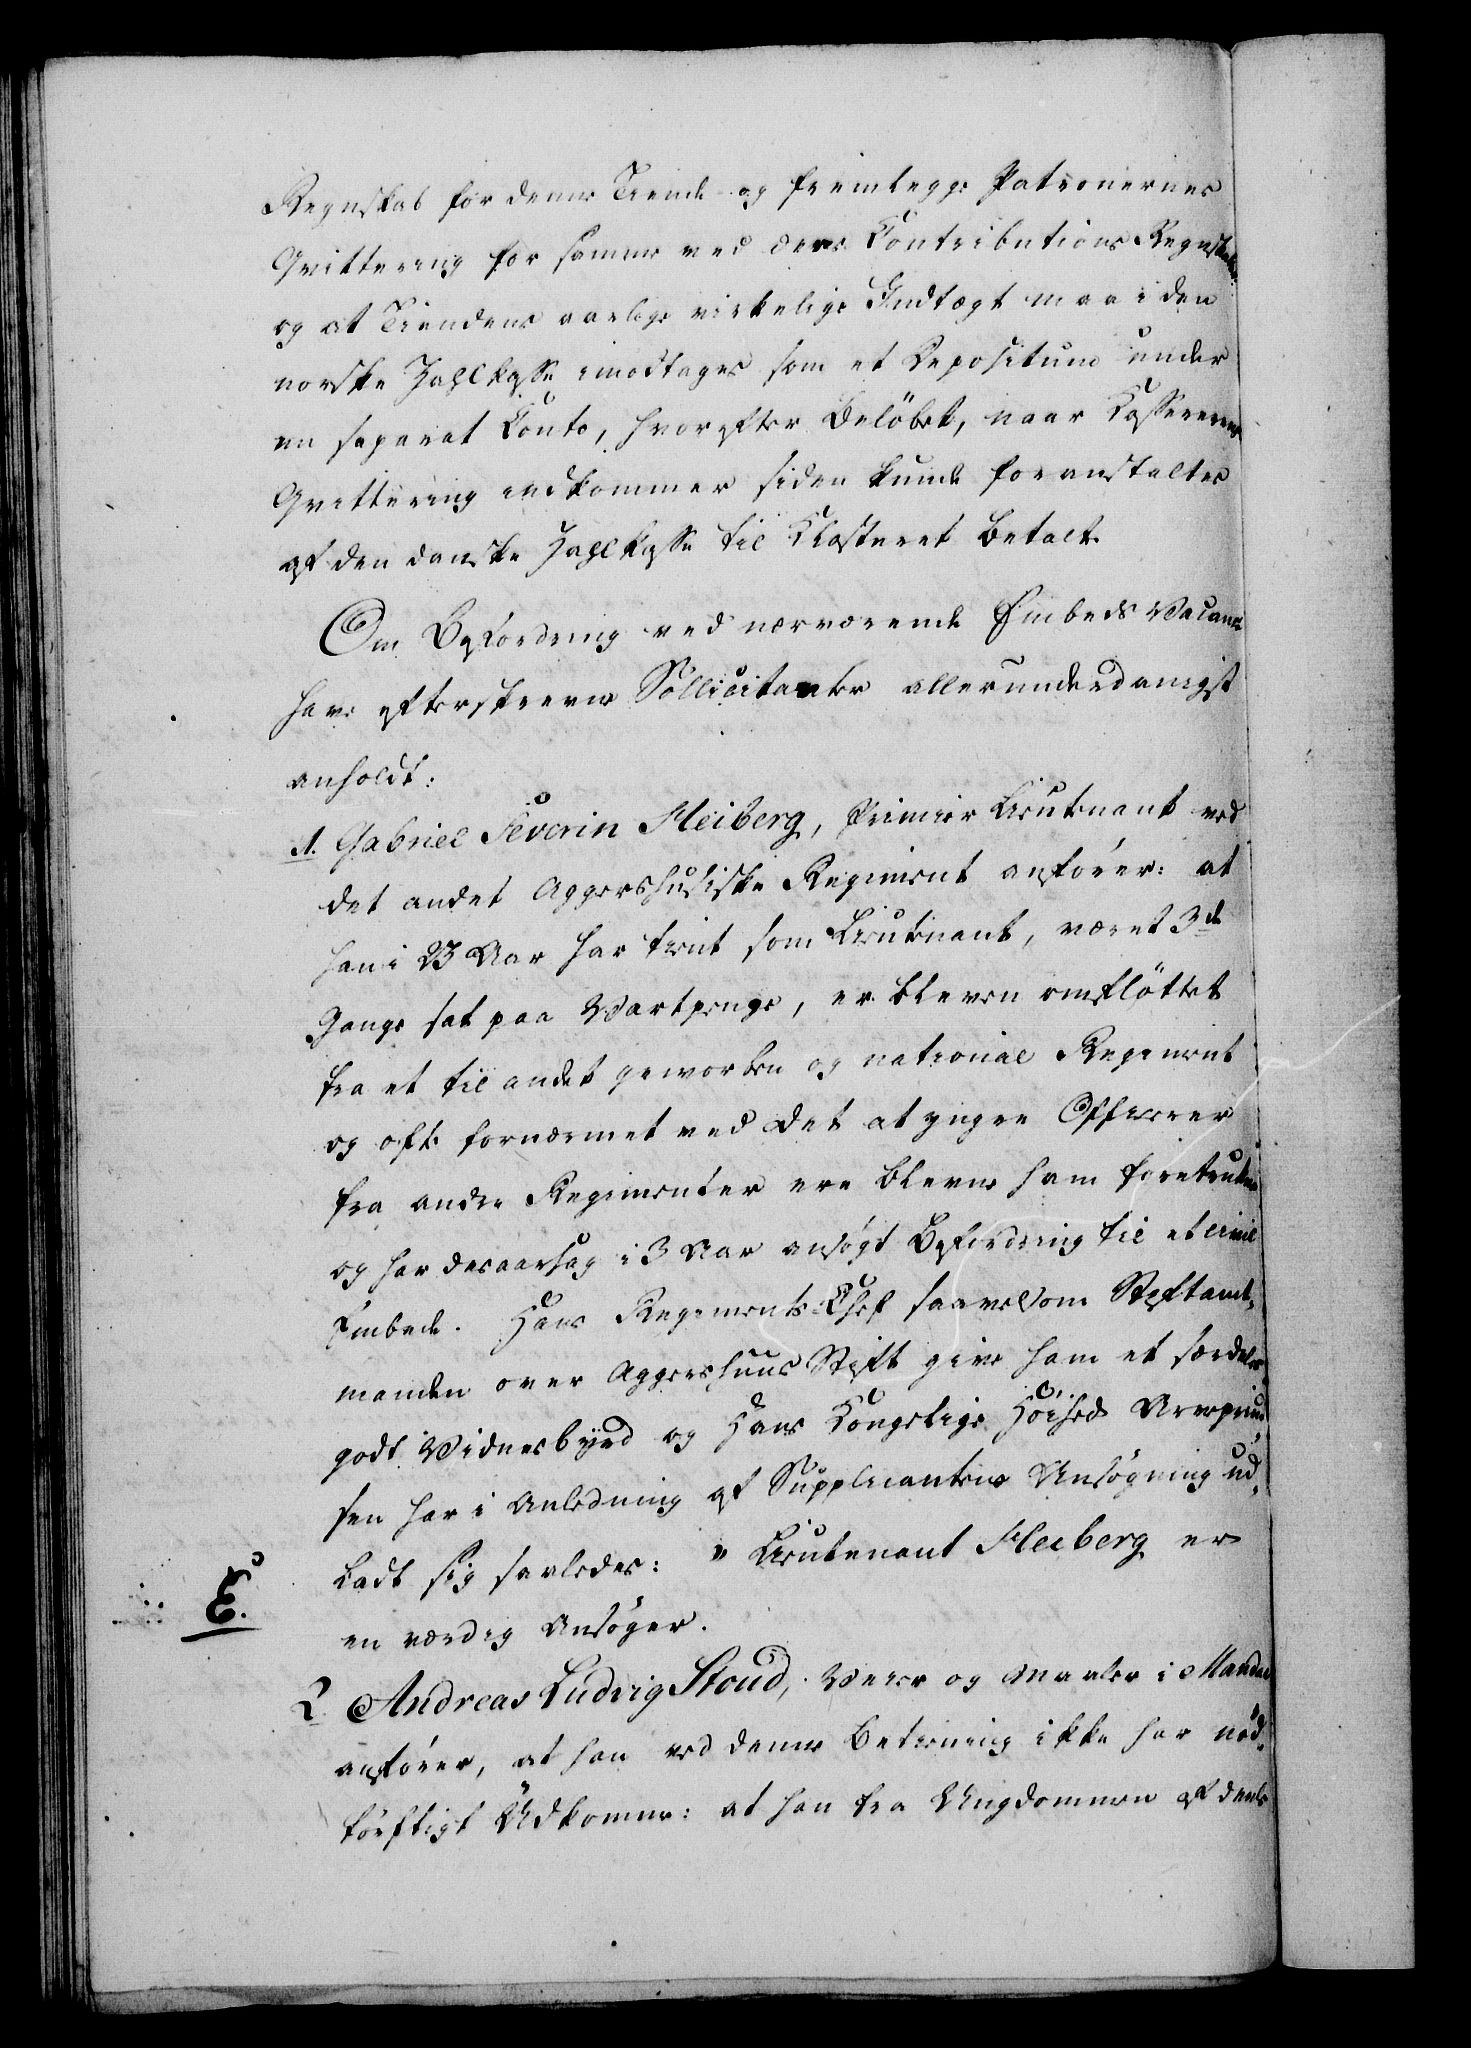 Regnskab for denne Tiende og fremlegge Patronernes
Qvittering for samme ved deres Contributions Regnskaber
og at Tiendens aarlige virkelige Indtægt maa i den
norske Zahlkasse imodtages som et Depositum under
en separat Conto, hvorefter Beløbet, naar Kassererens
Qvittering indkommer siden kunde foranstaltes
af den danske Zahlkasse til Klosteret betalt.
Om Befordring ved nærværende Embeds Vacance
have efterskrevne Sollicitanter allerunderdanigst
anholdt:
1. Gabriel Severin Heiberg, Premier Lieutenant ved
det andet Aggershusiske Regiment anfører: at
han i 23 Aar har tient som Lieutenant, været 3de
Gange sat paa Vartpenge, er bleven omfløttet
fra et til andet geworben og national Regiment
og ofte fornærmet ved det at yngre Officerer
fra andre Regimenter ere blevne ham foretrukne
og har desaarsag i 3 Aar ansøgt Befordring til et civil
Embede. Hans Regiments-Chef saavelsom Stiftamt-
manden over Aggershuus Stift give ham et særdeles
godt Vidnesbyrd og Hans Kongelige Høihed Arveprind-
sen har i Anledning af Supplicantens Ansøgning ud-
ladt sig saaledes: "Lieutenant Heiberg er
E.
en værdig Ansøger.
2 Andreas Ludvig Stoud, Veier og Maaler i Mandal
anfører, at han ved denne Betiening ikke har nød-
tørftigt Udkomme: at han fra Ungdommen af deels